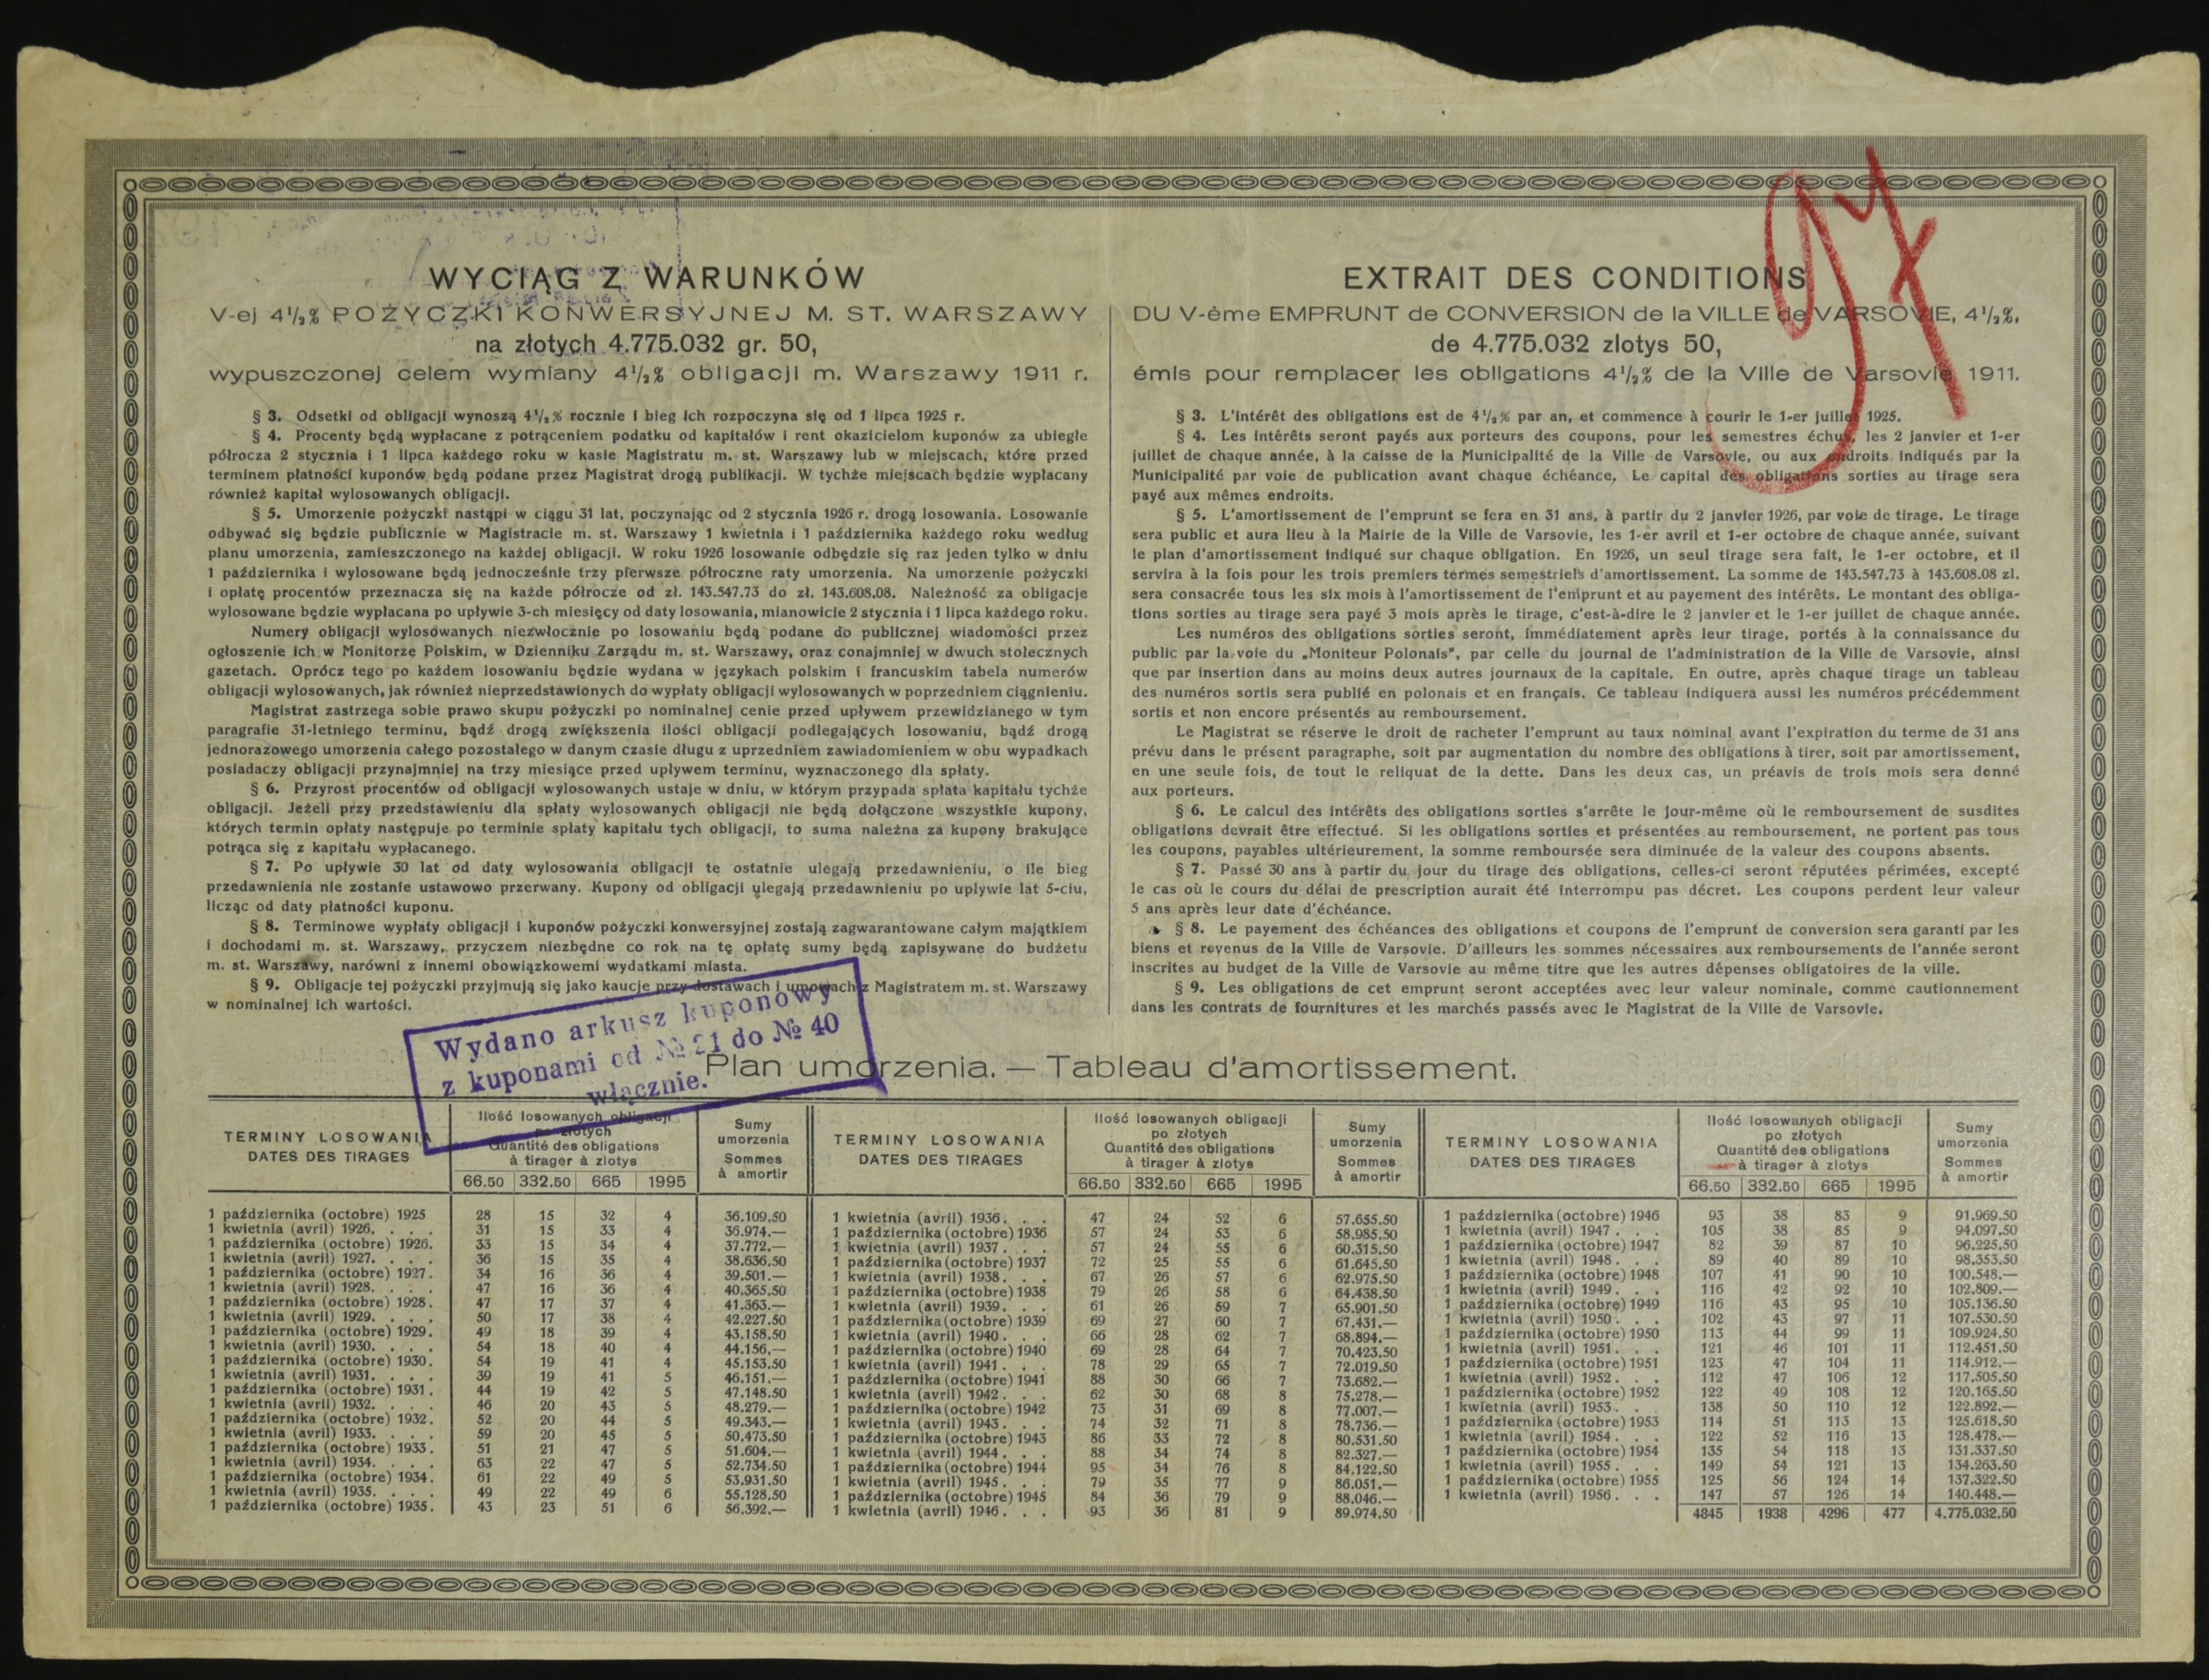 WYCIĄG Z WARUNKÓW
V-ej 4½% POŻYCZKI KONWERSYJNEJ M. ST. WARSZAWY
na złotych 4.775.032 gr. 50,
wypuszczonej celem wymiany 4½% obligacji m. Warszawy 1911 r.
§ 3. Odsetki od obligacji wynoszą 4½% rocznie i bieg ich rozpoczyna się od 1 lipca 1925 r.
§ 4. Procenty będą wypłacane z potrąceniem podatku od kapitałów i rent okazicielom kuponów za ubiegłe
półrocza 2 stycznia i 1 lipca każdego roku w kasie Magistratu m. st. Warszawy lub w miejscach, które przed
terminem płatności kuponów będą podane przez Magistrat drogą publikacji. W tychże miejscach będzie wypłacany
również kapitał wylosowanych obligacji.
§ 5. Umorzenie pożyczki nastąpi w ciągu 31 lat, poczynając od 2 stycznia 1926 r. drogą losowania. Losowanie
odbywać się będzie publicznie w Magistracie m. st. Warszawy 1 kwietnia i 1 października każdego roku według
planu umorzenia, zamieszczonego na każdej obligacji. W roku 1926 losowanie odbędzie się raz jeden tylko w dniu
1 października i wylosowane będą jednocześnie trzy pierwsze półroczne raty umorzenia. Na umorzenie pożyczki
i opłatę procentów przeznacza się na każde półrocze od zł. 143.547.73 do zł. 143.608.08. Należność za obligacje
wylosowane będzie wypłacana po upływie 3-ch miesięcy od daty losowania, mianowicie 2 stycznia i 1 lipca każdego roku.
Numery obligacji wylosowanych niezwłocznie po losowaniu będą podane do publicznej wiadomości przez
ogłoszenie ich w Monitorze Polskim, w Dzienniku Zarządu m. st. Warszawy, oraz conajmniej w dwuch stołecznych
gazetach. Oprócz tego po każdem losowaniu będzie wydana w językach polskim i francuskim tabela numerów
obligacji wylosowanych, jak również nieprzedstawionych do wypłaty obligacji wylosowanych w poprzedniem ciągnieniu.
Magistrat zastrzega sobie prawo skupu pożyczki po nominalnej cenie przed upływem przewidzianego w tym
paragrafie 31-letniego terminu, bądź drogą zwiększenia ilości obligacji podlegających losowaniu, bądź drogą
jednorazowego umorzenia całego pozostałego w danym czasie długu z uprzedniem zawiadomieniem w obu wypadkach
posiadaczy obligacji przynajmniej na trzy miesiące przed upływem terminu, wyznaczonego dla spłaty.
§ 6. Przyrost procentów od obligacji wylosowanych ustaje w dniu, w którym przypada spłata kapitału tychże
obligacji. Jeżeli przy przedstawieniu dla spłaty wylosowanych obligacji nie będą dołączone wszystkie kupony,
których termin opłaty następuje po terminie spłaty kapitału tych obligacji, to suma należna za kupony brakujące
potrąca się z kapitału wypłacanego.
§ 7. Po upływie 30 lat od daty wylosowania obligacji te ostatnie ulegają przedawnieniu, o ile bieg
przedawnienia nie zostanie ustawowo przerwany. Kupony od obligacji ulegają przedawnieniu po upływie lat 5-ciu,
licząc od daty płatności kuponu.
§ 8. Terminowe wypłaty obligacji i kuponów pożyczki konwersyjnej zostają zagwarantowane całym majątkiem
i dochodami m. st. Warszawy, przyczem niezbędne co rok na tę opłatę sumy będą zapisywane do budżetu
m. st. Warszawy, narówni z innemi obowiązkowemi wydatkami miasta.
§ 9. Obligacje tej pożyczki przyjmują się jako kaucje przy dostawach i umowach z Magistratem m. st. Warszawy
w nominalnej ich wartości.
EXTRAIT DES CONDITIONS
DU V-ème EMPRUNT de CONVERSION de la VILLE de VARSOVIE, 4½%,
de 4.775.032 zlotys 50,
émis pour remplacer les obligations 4½% de la Ville de Varsovie 1911.
§ 3. L'intérêt des obligations est de 4½% par an, et commence à courir le 1-er juillet 1925.
§ 4. Les intérêts seront payés aux porteurs des coupons, pour les semestres échus, les 2 janvier et 1-er
juillet de chaque année, à la caisse de la Municipalité de la Ville de Varsovie, ou aux endroits indiqués par la
Municipalité par voie de publication avant chaque échéance. Le capital des obligations sorties au tirage sera
payé aux mêmes endroits.
§ 5. L'amortissement de l'emprunt se fera en 31 ans, à partir du 2 janvier 1926, par voie de tirage. Le tirage
sera public et aura lieu à la Mairie de la Ville de Varsovie, les 1-er avril et 1-er octobre de chaque année, suivant
le plan d'amortissement indiqué sur chaque obligation. En 1926, un seul tirage sera fait, le 1-er octobre, et il
servira à la fois pour les trois premiers termes semestriels d'amortissement. La somme de 143.547.73 à 143.608.08 zl.
sera consacrée tous les six mois à l'amortissement de l'emprunt et au payement des intérêts. Le montant des obliga-
tions sorties au tirage sera payé 3 mois après le tirage, c'est-à-dire le 2 janvier et le 1-er juillet de chaque année.
Les numéros des obligations sorties seront, immédiatement après leur tirage, portés à la connaissance du
public par la voie du „Moniteur Polonais", par celle du journal de l'administration de la Ville de Varsovie, ainsi
que par insertion dans au moins deux autres journaux de la capitale. En outre, après chaque tirage un tableau
des numéros sortis sera publié en polonais et en français. Ce tableau indiquera aussi les numéros précédemment
sortis et non encore présentés au remboursement.
Le Magistrat se réserve le droit de racheter l'emprunt au taux nominal avant l'expiration du terme de 31 ans
prévu dans le présent paragraphe, soit par augmentation du nombre des obligations à tirer, soit par amortissement,
en une seule fois, de tout le reliquat de la dette. Dans les deux cas, un préavis de trois mois sera donné
aux porteurs.
§ 6. Le calcul des intérêts des obligations sorties s'arrête le jour-même où le remboursement de susdites
obligations devrait être effectué. Si les obligations sorties et présentées au remboursement, ne portent pas tous
les coupons, payables ultérieurement, la somme remboursée sera diminuée de la valeur des coupons absents.
§ 7. Passé 30 ans à partir du jour du tirage des obligations, celles-ci seront réputées périmées, excepté
le cas où le cours du délai de prescription aurait été interrompu pas décret. Les coupons perdent leur valeur
5 ans après leur date d'échéance.
§ 8. Le payement des échéances des obligations et coupons de l'emprunt de conversion sera garanti par les
biens et revenus de la Ville de Varsovie. D'ailleurs les sommes nécessaires aux remboursements de l'année seront
inscrites au budget de la Ville de Varsovie au même titre que les autres dépenses obligatoires de la ville.
§ 9. Les obligations de cet emprunt seront acceptées avec leur valeur nominale, comme cautionnement
dans les contrats de fournitures et les marchés passés avec le Magistrat de la Ville de Varsovie.
97
Wydano arkusz kuponowy
z kuponami od № 21 do № 40
włącznie.
Plan umorzenia. — Tableau d'amortissement.
TERMINY LOSOWANIA
DATES DES TIRAGES
Ilość losowanych obligacji
po złotych
Quantité des obligations
à tirager à zlotys
66.50 332.50 665 1995
Sumy
umorzenia
Sommes
à amortir
1 października (octobre) 1925 28 15 32 4 36,109.50
1 kwietnia (avril) 1926. . . . 31 15 33 4 36.974.—
1 października (octobre) 1926. 33 15 34 4 37.772.—
1 kwietnia (avril) 1927. . . . 36 15 35 4 38.636.50
1 października (octobre) 1927. 34 16 36 4 39.501.—
1 kwietnia (avril) 1928. . . . 47 16 36 4 40.365.50
1 października (octobre) 1928. 47 17 37 4 41.363.—
1 kwietnia (avril) 1929. . . . 50 17 38 4 42.227.50
1 października (octobre) 1929. 49 18 39 4 43.158.50
1 kwietnia (avril) 1930. . . . 54 18 40 4 44.156.—
1 października (octobre) 1930. 54 19 41 4 45.153.50
1 kwietnia (avril) 1931. . . . 39 19 41 5 46.151.—
1 października (octobre) 1931. 44 19 42 5 47.148.50
1 kwietnia (avril) 1932. . . . 46 20 43 5 48.279.—
1 października (octobre) 1932. 52 20 44 5 49.343.—
1 kwietnia (avril) 1933. . . . 59 20 45 5 50.473.50
1 października (octobre) 1933. 51 21 47 5 51.604.—
1 kwietnia (avril) 1934. . . . 63 22 47 5 52.734.50
1 października (octobre) 1934. 61 22 49 5 53.931.50
1 kwietnia (avril) 1935. . . . 49 22 49 6 55.128.50
1 października (octobre) 1935. 43 23 51 6 56.392.—
TERMINY LOSOWANIA
DATES DES TIRAGES
Ilość losowanych obligacji
po złotych
Quantité des obligations
à tirager à zlotys
66.50 332.50 665 1995
Sumy
umorzenia
Sommes
à amortir
1 kwietnia (avril) 1936. . . 47 24 52 6 57.655.50
1 października (octobre) 1936 57 24 53 6 58.985.50
1 kwietnia (avril) 1937. . . 57 24 55 6 60.315.50
1 października (octobre) 1937 72 25 55 6 61.645.50
1 kwietnia (avril) 1938. . . 67 26 57 6 62.975.50
1 października (octobre) 1938 79 26 58 6 64.438.50
1 kwietnia (avril) 1939. . . 61 26 59 7 65.901.50
1 października (octobre) 1939 69 27 60 7 67.431.—
1 kwietnia (avril) 1940. . . 66 28 62 7 68.894.—
1 października (octobre) 1940 69 28 64 7 70.423.50
1 kwietnia (avril) 1941. . . 78 29 65 7 72.019.50
1 października (octobre) 1941 88 30 66 7 73.682.—
1 kwietnia (avril) 1942. . . 62 30 68 8 75.278.—
1 października (octobre) 1942 73 31 69 8 77.007.—
1 kwietnia (avril) 1943. . . 74 32 71 8 78.736.—
1 października (octobre) 1943 86 33 72 8 80.531.50
1 kwietnia (avril) 1944. . . 88 34 74 8 82.327.—
1 października (octobre) 1944 95 34 76 8 84.122.50
1 kwietnia (avril) 1945. . . 79 35 77 9 86.051.—
1 października (octobre) 1945 84 36 79 9 88.046.—
1 kwietnia (avril) 1946. . . 93 36 81 9 89.974.50
TERMINY LOSOWANIA
DATES DES TIRAGES
Ilość losowanych obligacji
po złotych
Quantité des obligations
à tirager à zlotys
66.50 332.50 665 1995
Sumy
umorzenia
Sommes
à amortir
1 października (octobre) 1946 93 38 83 9 91.969.50
1 kwietnia (avril) 1947. . . 105 38 85 9 94.097.50
1 października (octobre) 1947 82 39 87 10 96.225.50
1 kwietnia (avril) 1948. . . 89 40 89 10 98.353.50
1 października (octobre) 1948 107 41 90 10 100.548.—
1 kwietnia (avril) 1949. . . 116 42 92 10 102.809.—
1 października (octobre) 1949 116 43 95 10 105.136.50
1 kwietnia (avril) 1950. . . 102 43 97 11 107.530.50
1 października (octobre) 1950 113 44 99 11 109.924.50
1 kwietnia (avril) 1951. . . 121 46 101 11 112.451.50
1 października (octobre) 1951 123 47 104 11 114.912.—
1 kwietnia (avril) 1952. . . 112 47 106 12 117.505.50
1 października (octobre) 1952 122 49 108 12 120.165.50
1 kwietnia (avril) 1953. . . 138 50 110 12 122.892.—
1 października (octobre) 1953 114 51 113 13 125.618.50
1 kwietnia (avril) 1954. . . 122 52 116 13 128.478.—
1 października (octobre) 1954 135 54 118 13 131.337.50
1 kwietnia (avril) 1955. . . 149 54 121 13 134.263.50
1 października (octobre) 1955 125 56 124 14 137.322.50
1 kwietnia (avril) 1956. . . 147 57 126 14 140.448.—
4845 1938 4296 477 4.775.032.50